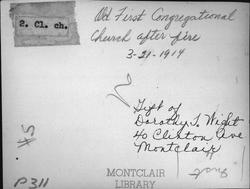 2. Cl. ch.
Old First Congregational
Church after fire
3-21-1914
Gift of
Dorothy T. Wight
40 Clinton Ave
Montclair
MONTCLAIR
LIBRARY
P311